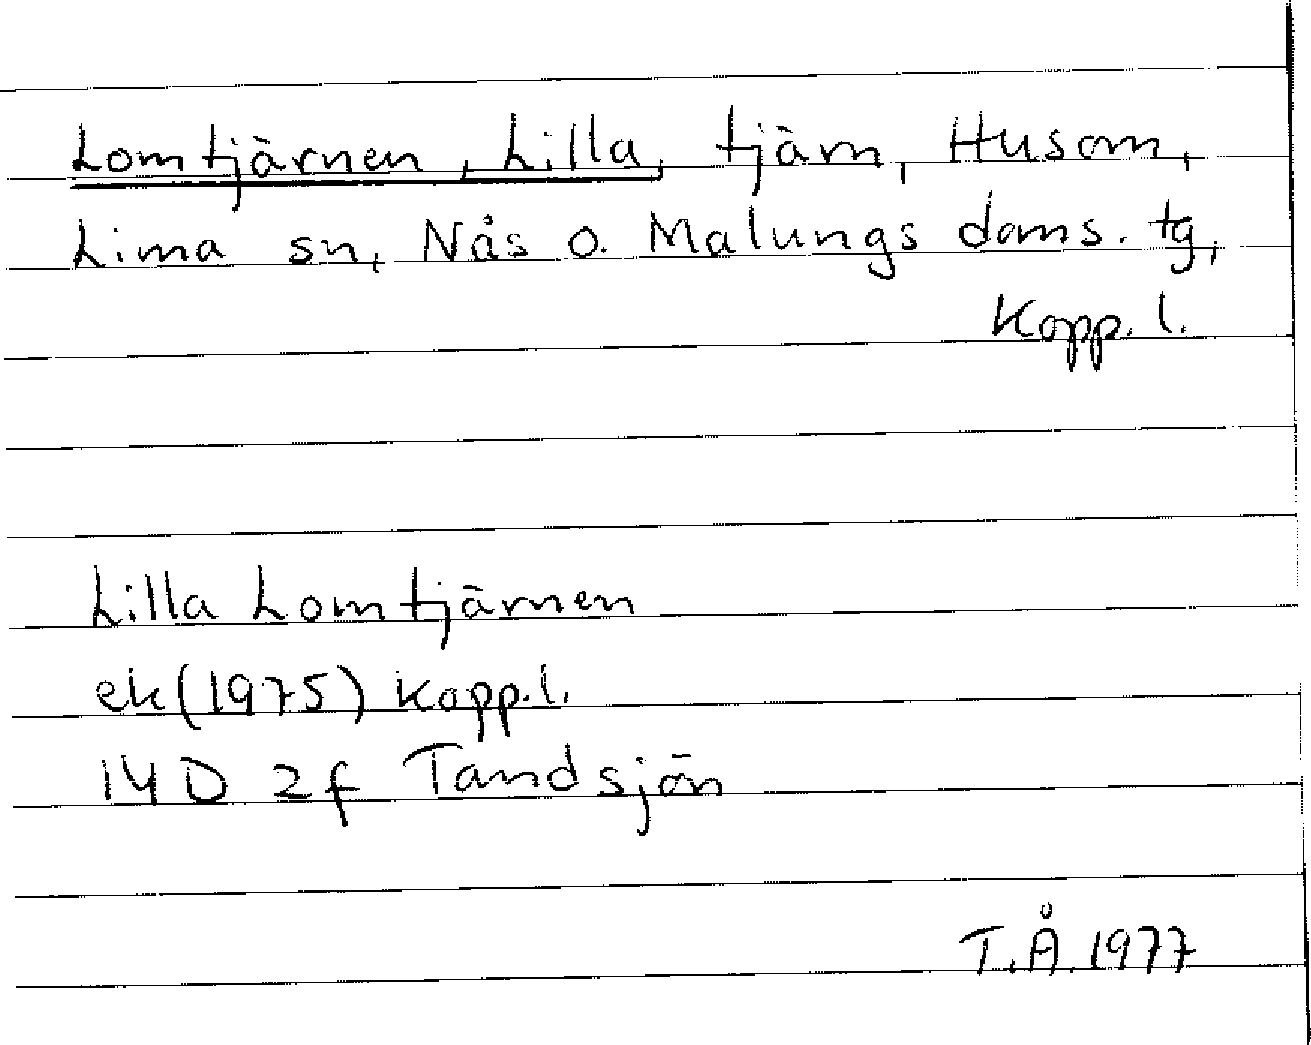 Lomtjärnen, Lilla, tjärn, Husom,
Lima sn, Nås o. Malungs doms. tg,
Kopp. l.
Lilla Lomtjärnen
ek (1975) Kopp. l.
14D 2f Tandsjön
T.Å. 1977